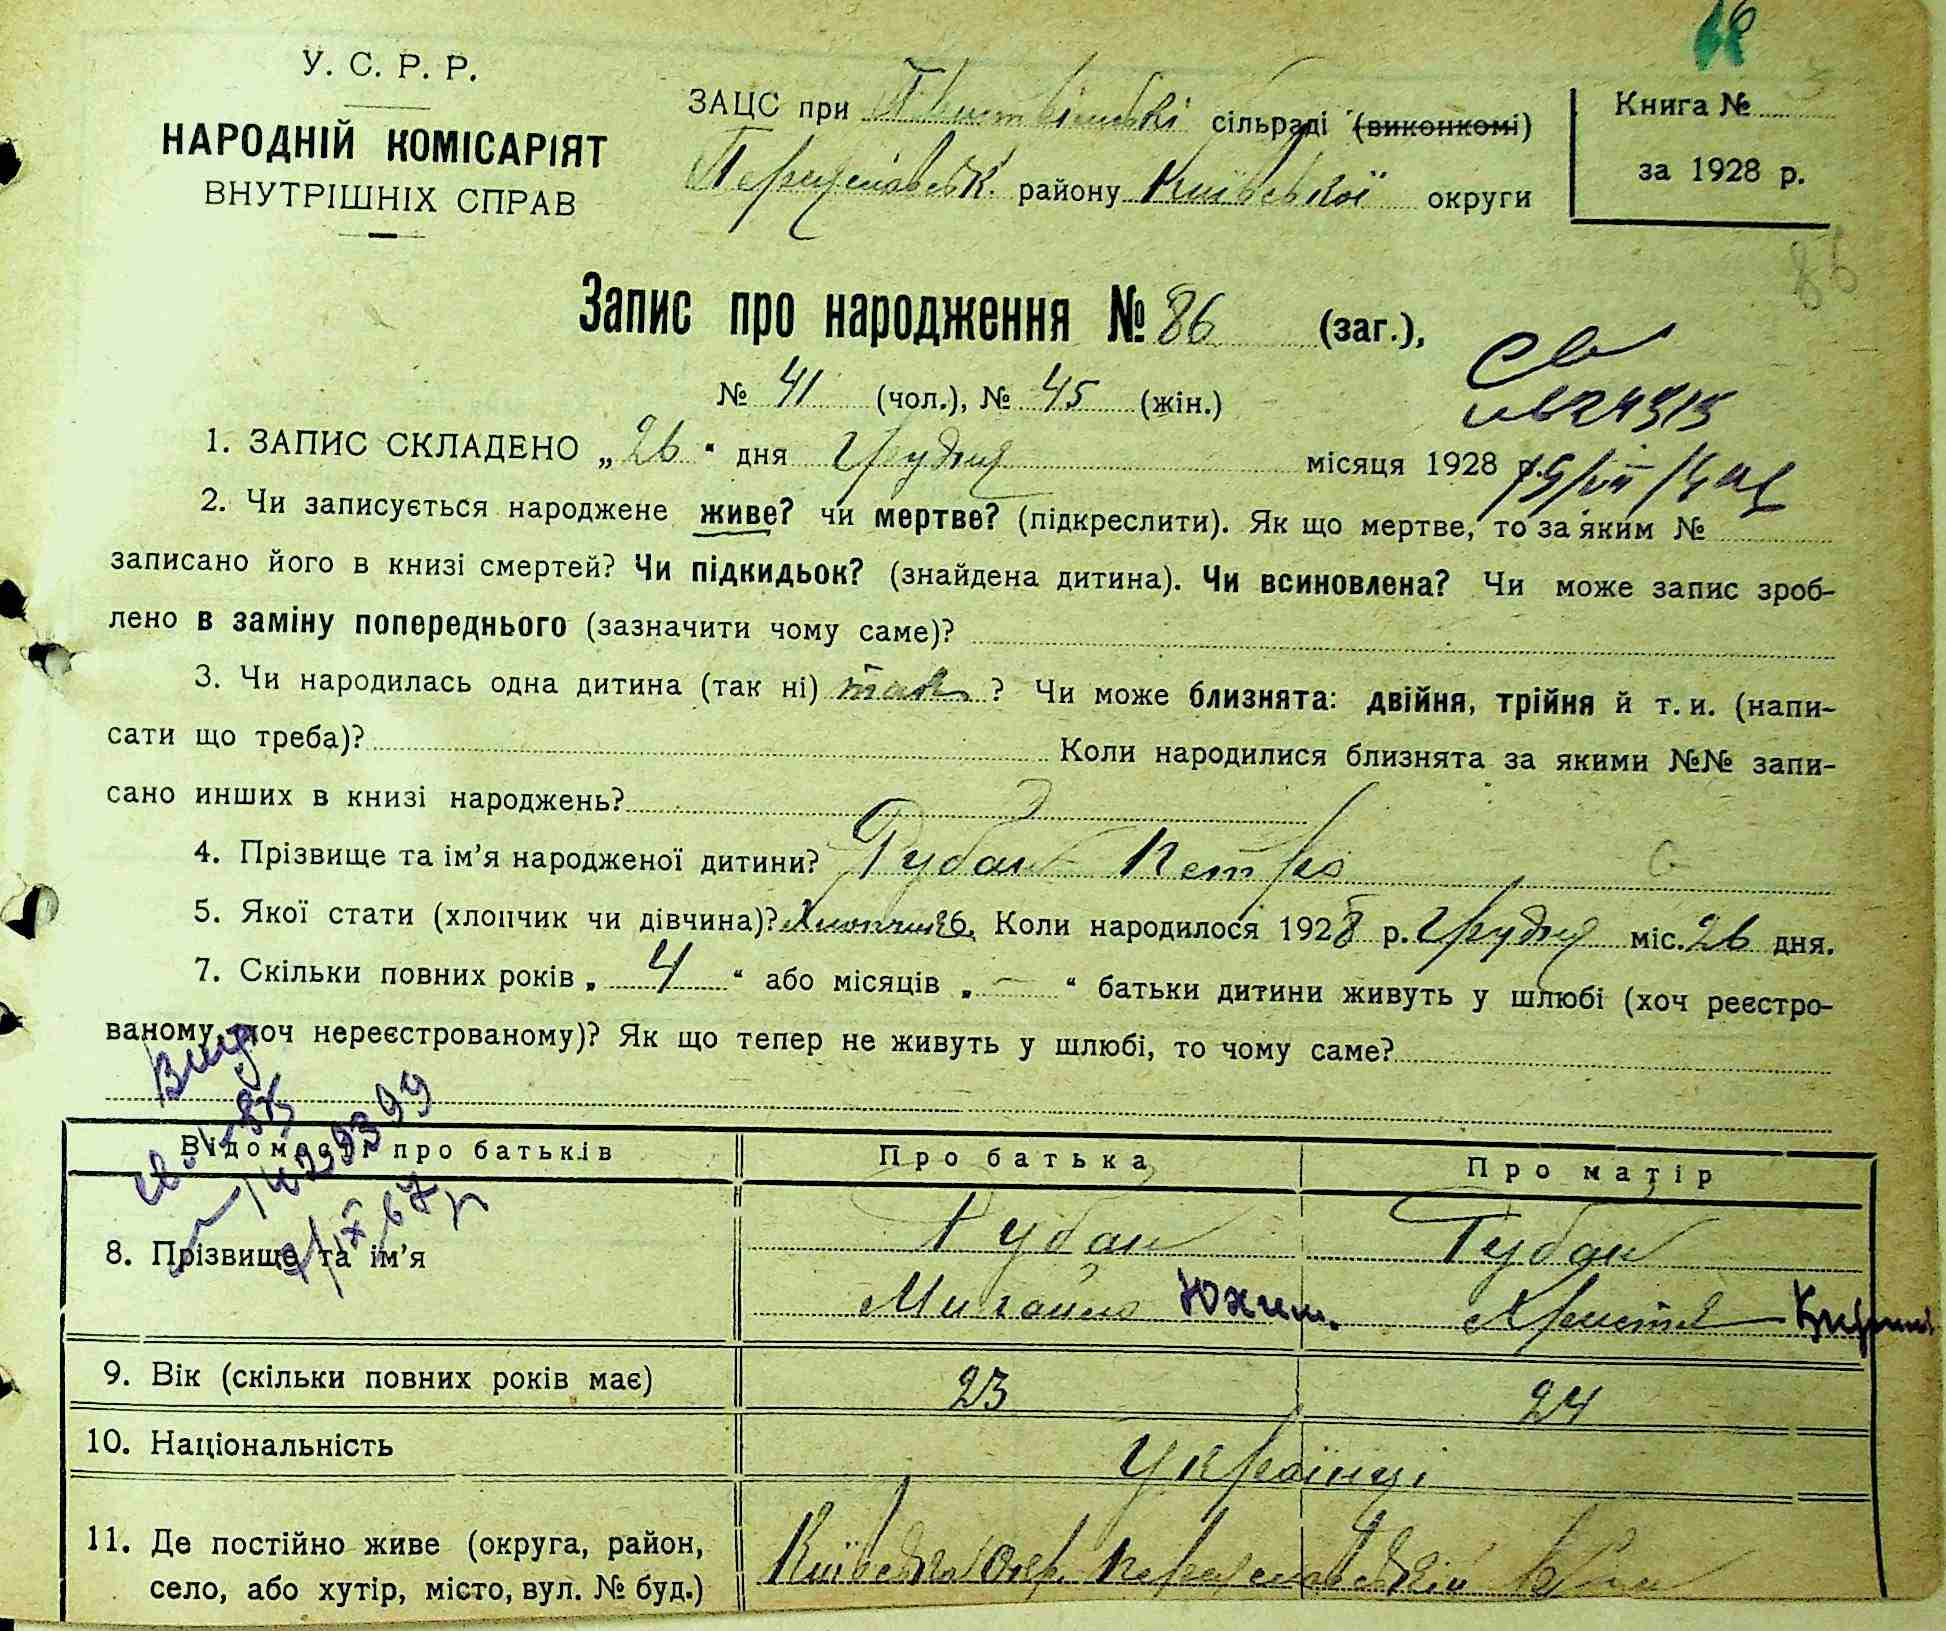 У. С. Р. Р.
НАРОДНІЙ КОМІСАРІЯТ
ВНУТРІШНІХ СПРАВ
ЗАЦС при сільраді (виконкомі)
Переяславськ. району Київської округи
Книга №
за 1928 р.
86
Запис про народження № 86 (заг.),
№ 41 (чол.), № 45 (жін.)
1. ЗАПИС СКЛАДЕНО „ 26 “ дня Грудня місяця 1928 р.
2. Чи записується народжене живе? чи мертве? (підкреслити). Як що мертве, то за яким №
записано його в книзі смертей? Чи підкидьок? (знайдена дитина). Чи всиновлена? Чи може запис зроб-
лено в заміну попереднього (зазначити чому саме)?
3. Чи народилась одна дитина (так ні) так ? Чи може близнята: двійня, трійня й т. и. (напи-
сати що треба)? Коли народилися близнята за якими №№ запи-
сано инших в книзі народжень?
4. Прізвище та ім’я народженої дитини? Рубан Петро
5. Якої стати (хлопчик чи дівчина)? Хлопчик 6. Коли народилося 1928 р. Грудня міс. 26 дня.
7. Скільки повних років „ 4 “ або місяців „ — “ батьки дитини живуть у шлюбі (хоч реєстро-
ваному, хоч нереєстрованому)? Як що тепер не живуть у шлюбі, то чому саме?
Відомості про батьків Про батька Про матір
8. Прізвище та ім’я Рубан Рубан
Михайло Юхим. Христя
9. Вік (скільки повних років має) 23 24
10. Національність Українці
11. Де постійно живе (округа, район,
село, або хутір, місто, вул. № буд.) Київська Окр. Переяславський